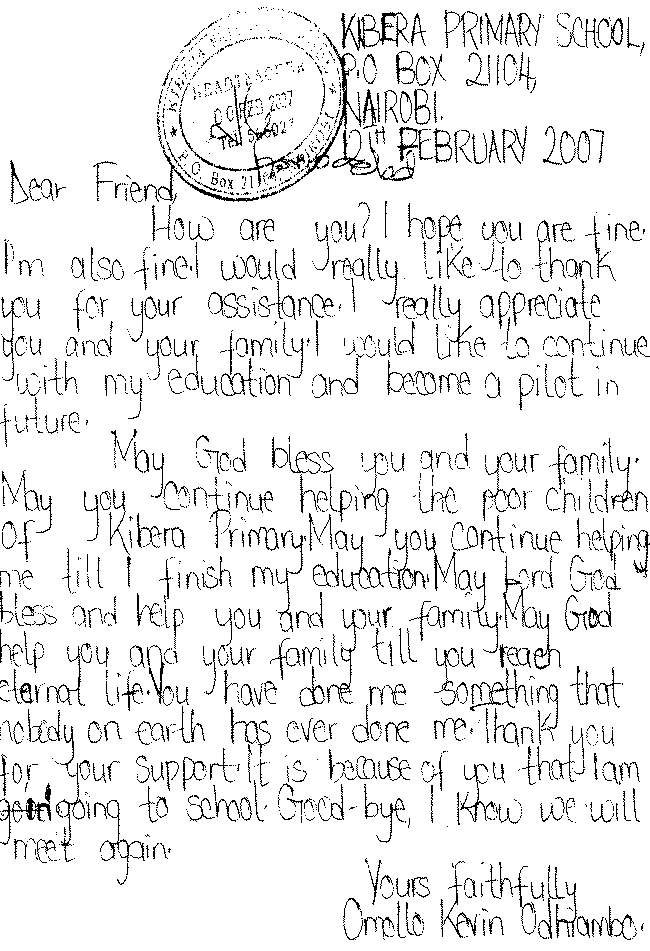 KIBERA PRIMARY SCHOOL,
P.O BOX 21104,
NAIROBI.
12TH FEBRUARY 2007
HEADMASTER
FEB 2007
P.O. Box 21
Dear Friend,
How are you? I hope you are fine.
I'm also fine.I would really like to thank
you for your assistance.I really appreciate
you and your family.I would like to continue
with my education and become a pilot in
future.
May God bless you and your family.
May you continue helping the poor children
Of Kibera Primary.May you continue helping
me till I finish my education.May Lord God
bless and help you and your family.May God
help you and your family till you reach
eternal life.You have done me something that
nobody on earth has ever done me.Thank you
for your support.It is because of you that I am
going to school. Good-bye, I know we will
meet again.
Yours faithfully
Omollo Kevin Odhiambo.